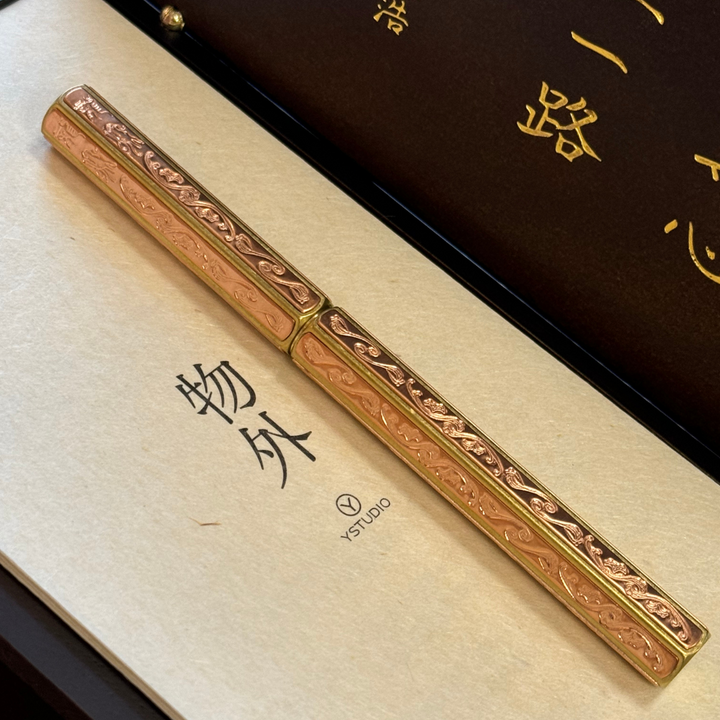 浩
一
路
心
物
外
Y
YSTUDIO